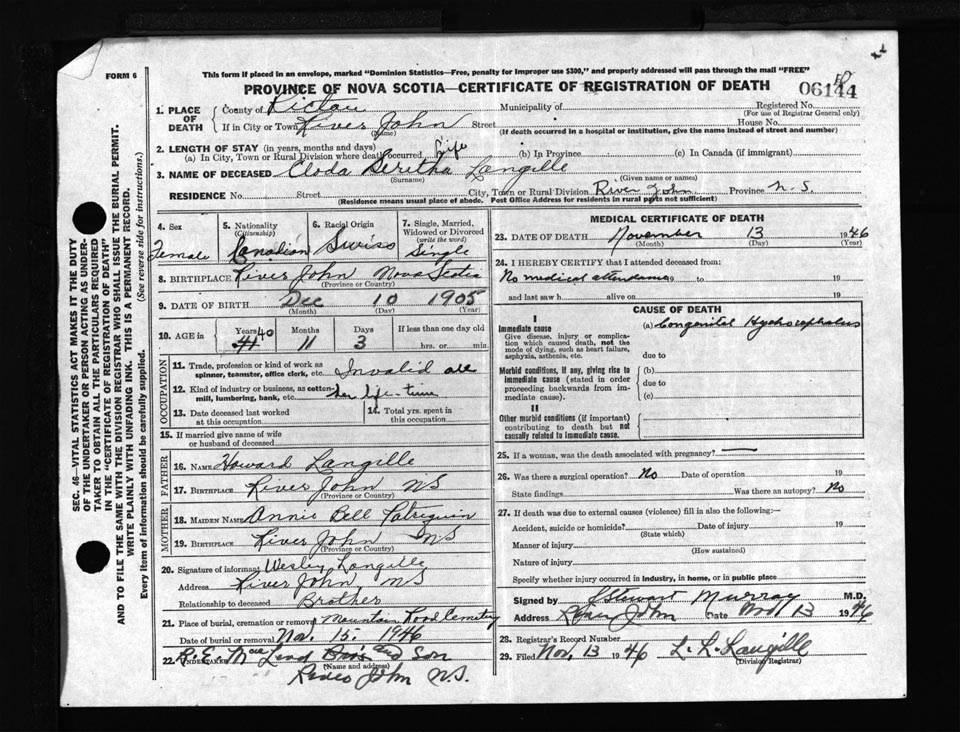 FORM 6
This form if placed in an envelope, marked "Dominion Statistics—Free, penalty for improper use $300," and properly addressed will pass through the mail "FREE"
PROVINCE OF NOVA SCOTIA—CERTIFICATE OF REGISTRATION OF DEATH
06144
1. PLACE OF DEATH
County of Pictou Municipality of Registered No.
(For use of Registrar General only)
If in City or Town River John Street House No.
(Name) (If death occurred in a hospital or institution, give the name instead of street and number)
2. LENGTH OF STAY (in years, months and days)
(a) In City, Town or Rural Division where death occurred Life (b) In Province (c) In Canada (if immigrant)
3. NAME OF DECEASED Cloda Beretha Langille
(Surname) (Given name or names)
RESIDENCE No. Street City, Town or Rural Division River John Province N.S.
(Residence means usual place of abode. Post Office Address for residents in rural parts not sufficient)
4. Sex Female
5. Nationality (Citizenship) Canadian
6. Racial Origin Swiss
7. Single, Married, Widowed or Divorced (write the word) Single
8. BIRTHPLACE River John Nova Scotia
(Province or Country)
9. DATE OF BIRTH Dec 10 1905
(Month) (Day) (Year)
10. AGE in Years 41 40 Months 11 Days 3 If less than one day old hrs. or min.
OCCUPATION
11. Trade, profession or kind of work as spinner, teamster, office clerk, etc. Invalid all
12. Kind of industry or business, as cotton-mill, lumbering, bank, etc. her life-time
13. Date deceased last worked at this occupation
14. Total yrs. spent in this occupation
15. If married give name of wife or husband of deceased
FATHER
16. NAME Howard Langille
17. BIRTHPLACE River John NS
(Province or Country)
MOTHER
18. MAIDEN NAME Annie Bell Patriquin
19. BIRTHPLACE River John NS
(Province or Country)
20. Signature of informant Wesley Langille
Address River John NS
Relationship to deceased Brother
21. Place of burial, cremation or removal Mountain Road Cemetery
Date of burial or removal Nov. 15. 1946
22. UNDERTAKER R. E. MacLeod and Son
(Name and address)
River John N.S.
MEDICAL CERTIFICATE OF DEATH
23. DATE OF DEATH November 13 1946
(Month) (Day) (Year)
24. I HEREBY CERTIFY that I attended deceased from:
No medical attendance 19 to 19
and last saw h alive on 19
CAUSE OF DEATH
I
Immediate cause (a) Congenital Hydrocephalus
Give disease, injury or complication which caused death, not the mode of dying, such as heart failure, asphyxia, asthenia, etc.
due to
Morbid conditions, if any, giving rise to immediate cause (stated in order proceeding backwards from immediate cause).
(b)
due to
(c)
II
Other morbid conditions (if important) contributing to death but not causally related to immediate cause.
25. If a woman, was the death associated with pregnancy? —
26. Was there a surgical operation? No Date of operation 19
State findings Was there an autopsy? No
27. If death was due to external causes (violence) fill in also the following:—
Accident, suicide or homicide? Date of injury 19
(State which)
Manner of injury
(How sustained)
Nature of injury
Specify whether injury occurred in industry, in home, or in public place
Signed by J Stewart Murray M.D.
Address River John Date Nov 13 1946
28. Registrar's Record Number
29. Filed Nov. 13 1946 L. L. Langille
(Division Registrar)
SEC. 46—VITAL STATISTICS ACT MAKES IT THE DUTY
OF THE UNDERTAKER OR PERSON ACTING AS UNDER-
TAKER TO OBTAIN ALL THE PARTICULARS REQUIRED
IN THE "CERTIFICATE OF REGISTRATION OF DEATH"
AND TO FILE THE SAME WITH THE DIVISION REGISTRAR WHO SHALL ISSUE THE BURIAL PERMIT.
WRITE PLAINLY WITH UNFADING INK. THIS IS A PERMANENT RECORD.
Every item of information should be carefully supplied. (See reverse side for instructions.)